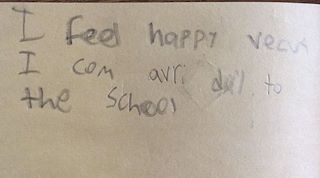 I feel happy
I com avri to
the school